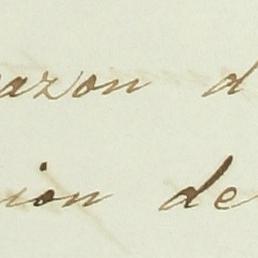 razon d
ion de